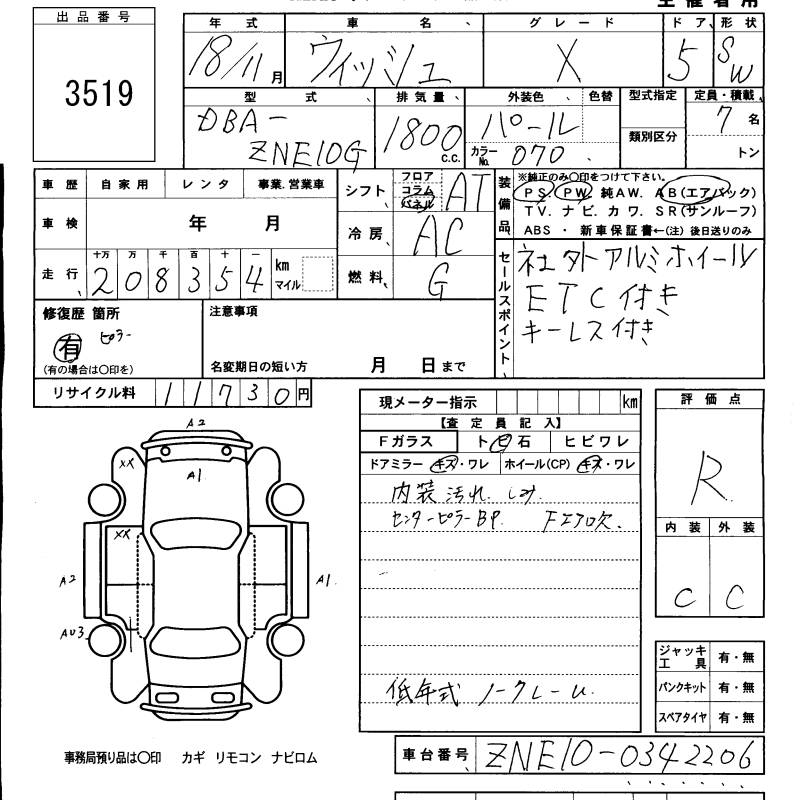 主催者用
出品番号
3519
年式 車名 グレード ドア 形状
18/11月 ウィッシュ X 5 SW
型式 排気量 外装色 色替 型式指定 定員・積載
DBA- ZNE10G 1800 C.C. パール カラーNo. 070 類別区分 7名 トン
車歴 自家用 レンタ 事業.営業車
車検 年 月
走行 十万 万 千 百 十 一
208354 km マイル
シフト フロア コラム パネル AT
冷房 AC
燃料 G
装備品
※純正のみ〇印をつけて下さい。
PS. PW. 純AW. AB(エアバック)
TV. ナビ. カワ. SR(サンルーフ)
ABS ・ 新車保証書←(注)後日送りのみ
セールスポイント
社外アルミホイール
ETC付き
キーレス付き
修復歴 箇所
有 ピラー
(有の場合は〇印を)
注意事項
名変期日の短い方 月 日まで
リサイクル料 11730円
現メーター指示 km
【査定員記入】
Fガラス トビ石 ヒビワレ
ドアミラー キズ・ワレ ホイール(CP) キズ・ワレ
内装汚れ. しみ.
センターピラーBP. Fエアロ欠.
低年式 ノークレーム.
評価点
R
内装 外装
C C
A2
XX
A1
XX
A2
A1.
AU3
ジャッキ工具 有・無
パンクキット 有・無
スペアタイヤ 有・無
事務局預り品は〇印 カギ リモコン ナビロム
車台番号 ZNE10-0342206